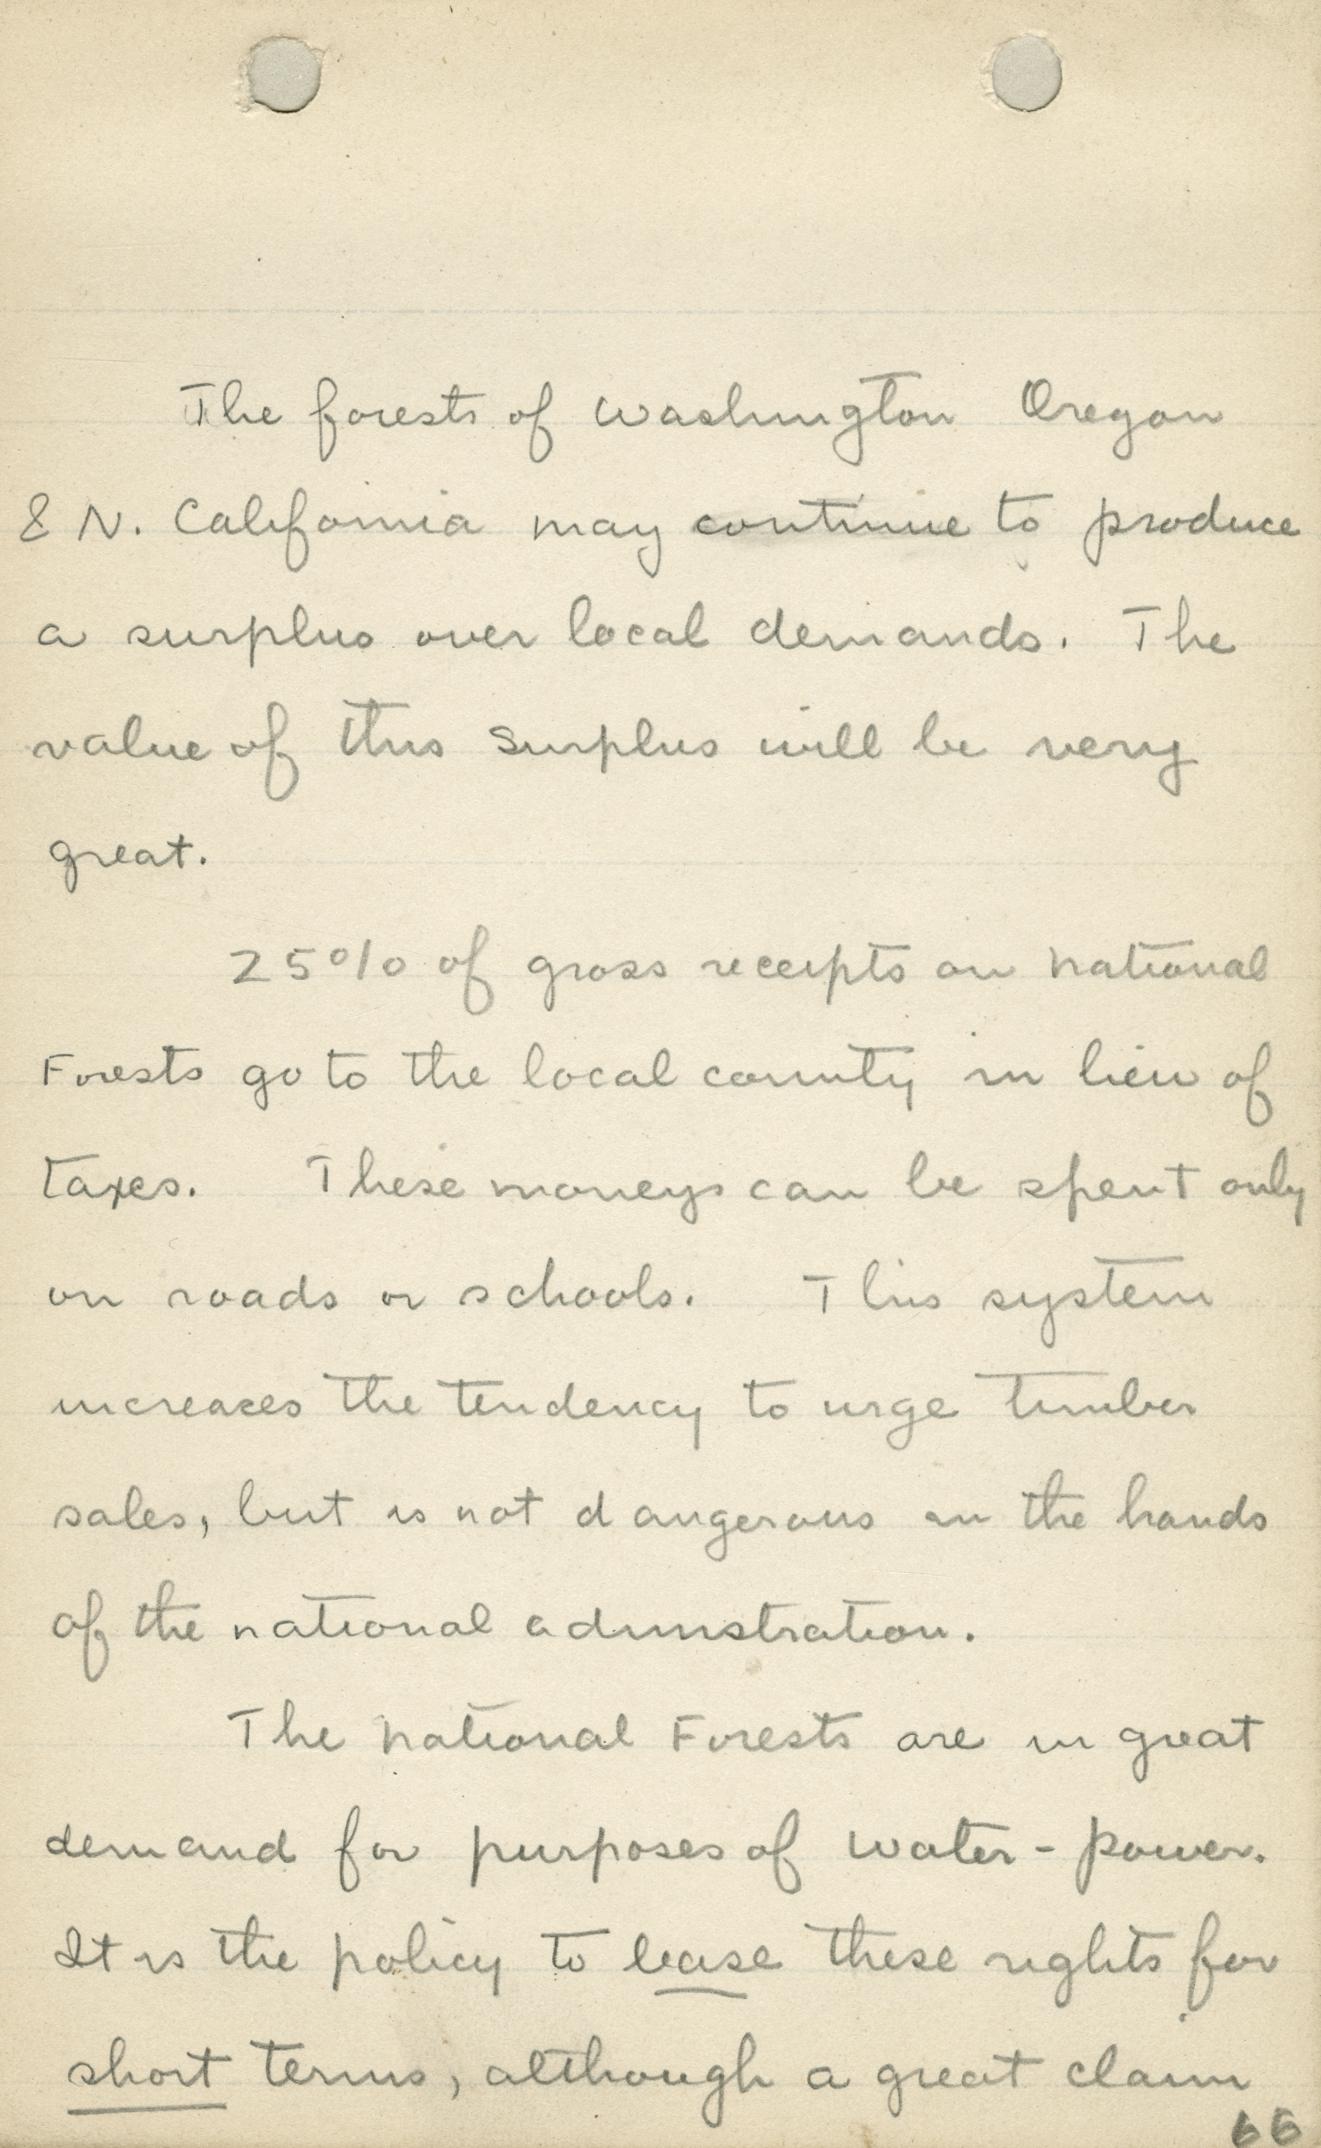 The forests of Washington Oregon
& N. California may continue to produce
a surplus over local demands. The
value of this surplus will be very
great.
25% of gross receipts on National
Forests go to the local county in lieu of
taxes. These moneys can be spent only
on roads or schools. This system
increases the tendency to urge timber
sales, but is not dangerous in the hands
of the national adminstration.
The National Forests are in great
demand for purposes of water-power.
It is the policy to lease these rights for
short terms, although a great claim
66